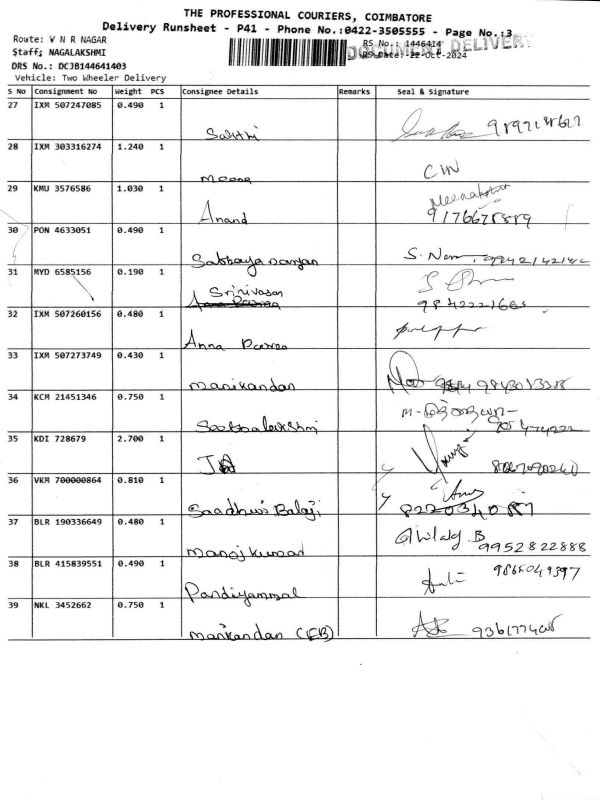 THE PROFESSIONAL COURIERS, COIMBATORE
Delivery Runsheet - P41 - Phone No.:0422-3505555 - Page No.:3
Route: V N R NAGAR
Staff; NAGALAKSHMI
DRS No.: DCJB144641403
RS No.: 1446414
RS Date: 22-Oct-2024
DOCUMENT DELIVERY
Vehicle: Two Wheeler Delivery
S No Consignment No Weight PCS Consignee Details Remarks Seal & Signature
27 IXM 507247085 0.490 1
Sakthi
28 IXM 303316274 1.240 1 CW
Meena
29 KMU 3576586 1.030 1
Anand 9176671889
30 PON 4633051 0.490 1
S.
31 MYD 6585156 0.190 1
Srinivasan
Anna Parma
32 IXM 507260156 0.480 1
Anna Parma
33 IXM 507273749 0.430 1
Manikandan
34 KCM 21451346 0.750 1
Seethalakshmi
35 KDI 728679 2.700 1
36 VKM 700000864 0.810 1
Balaji 8220340887
37 BLR 190336649 0.480 1
Manojkumar 9952822888
38 BLR 415839551 0.490 1
Pandiyammal
39 NKL 3452662 0.750 1
Manikandan (EB)